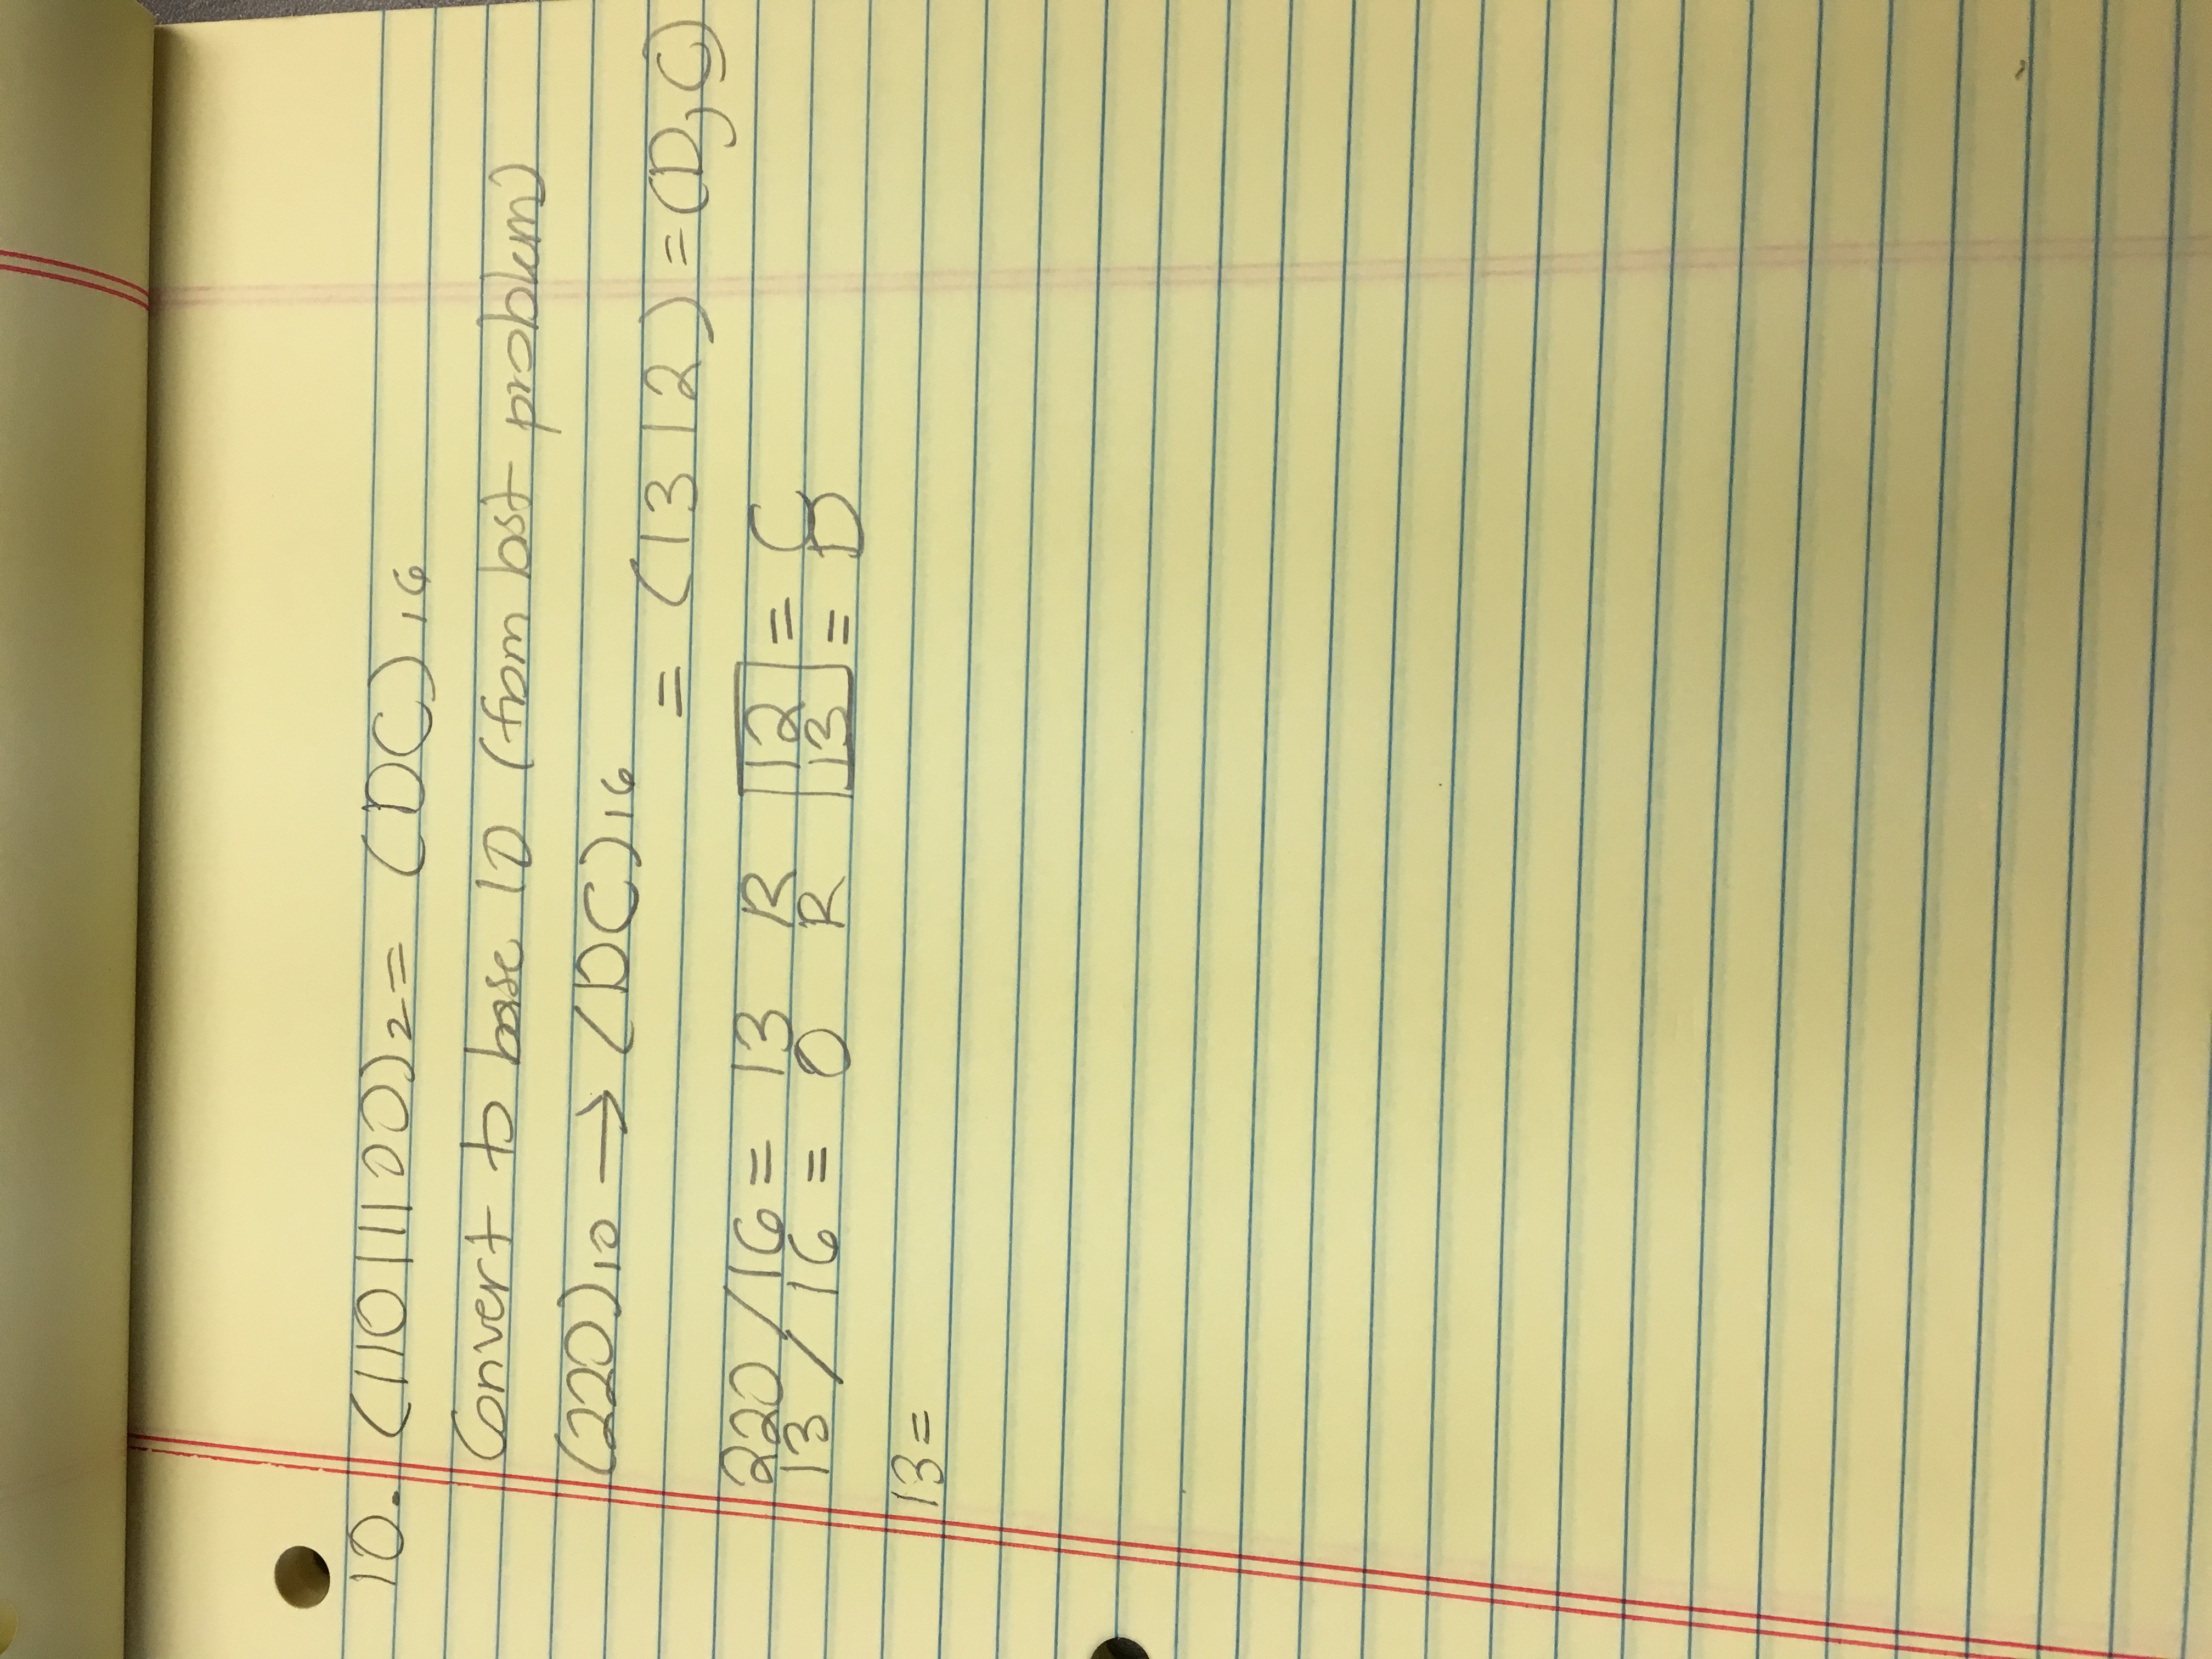 10. (11011100)2 = (DC)16
Convert to base 10 (from last problem)
(220)10 → (DC)16
= (13 12) = (D, C)
220 / 16 = 13 R 12 = C
13 / 16 = 0 R 13 = D
13 =